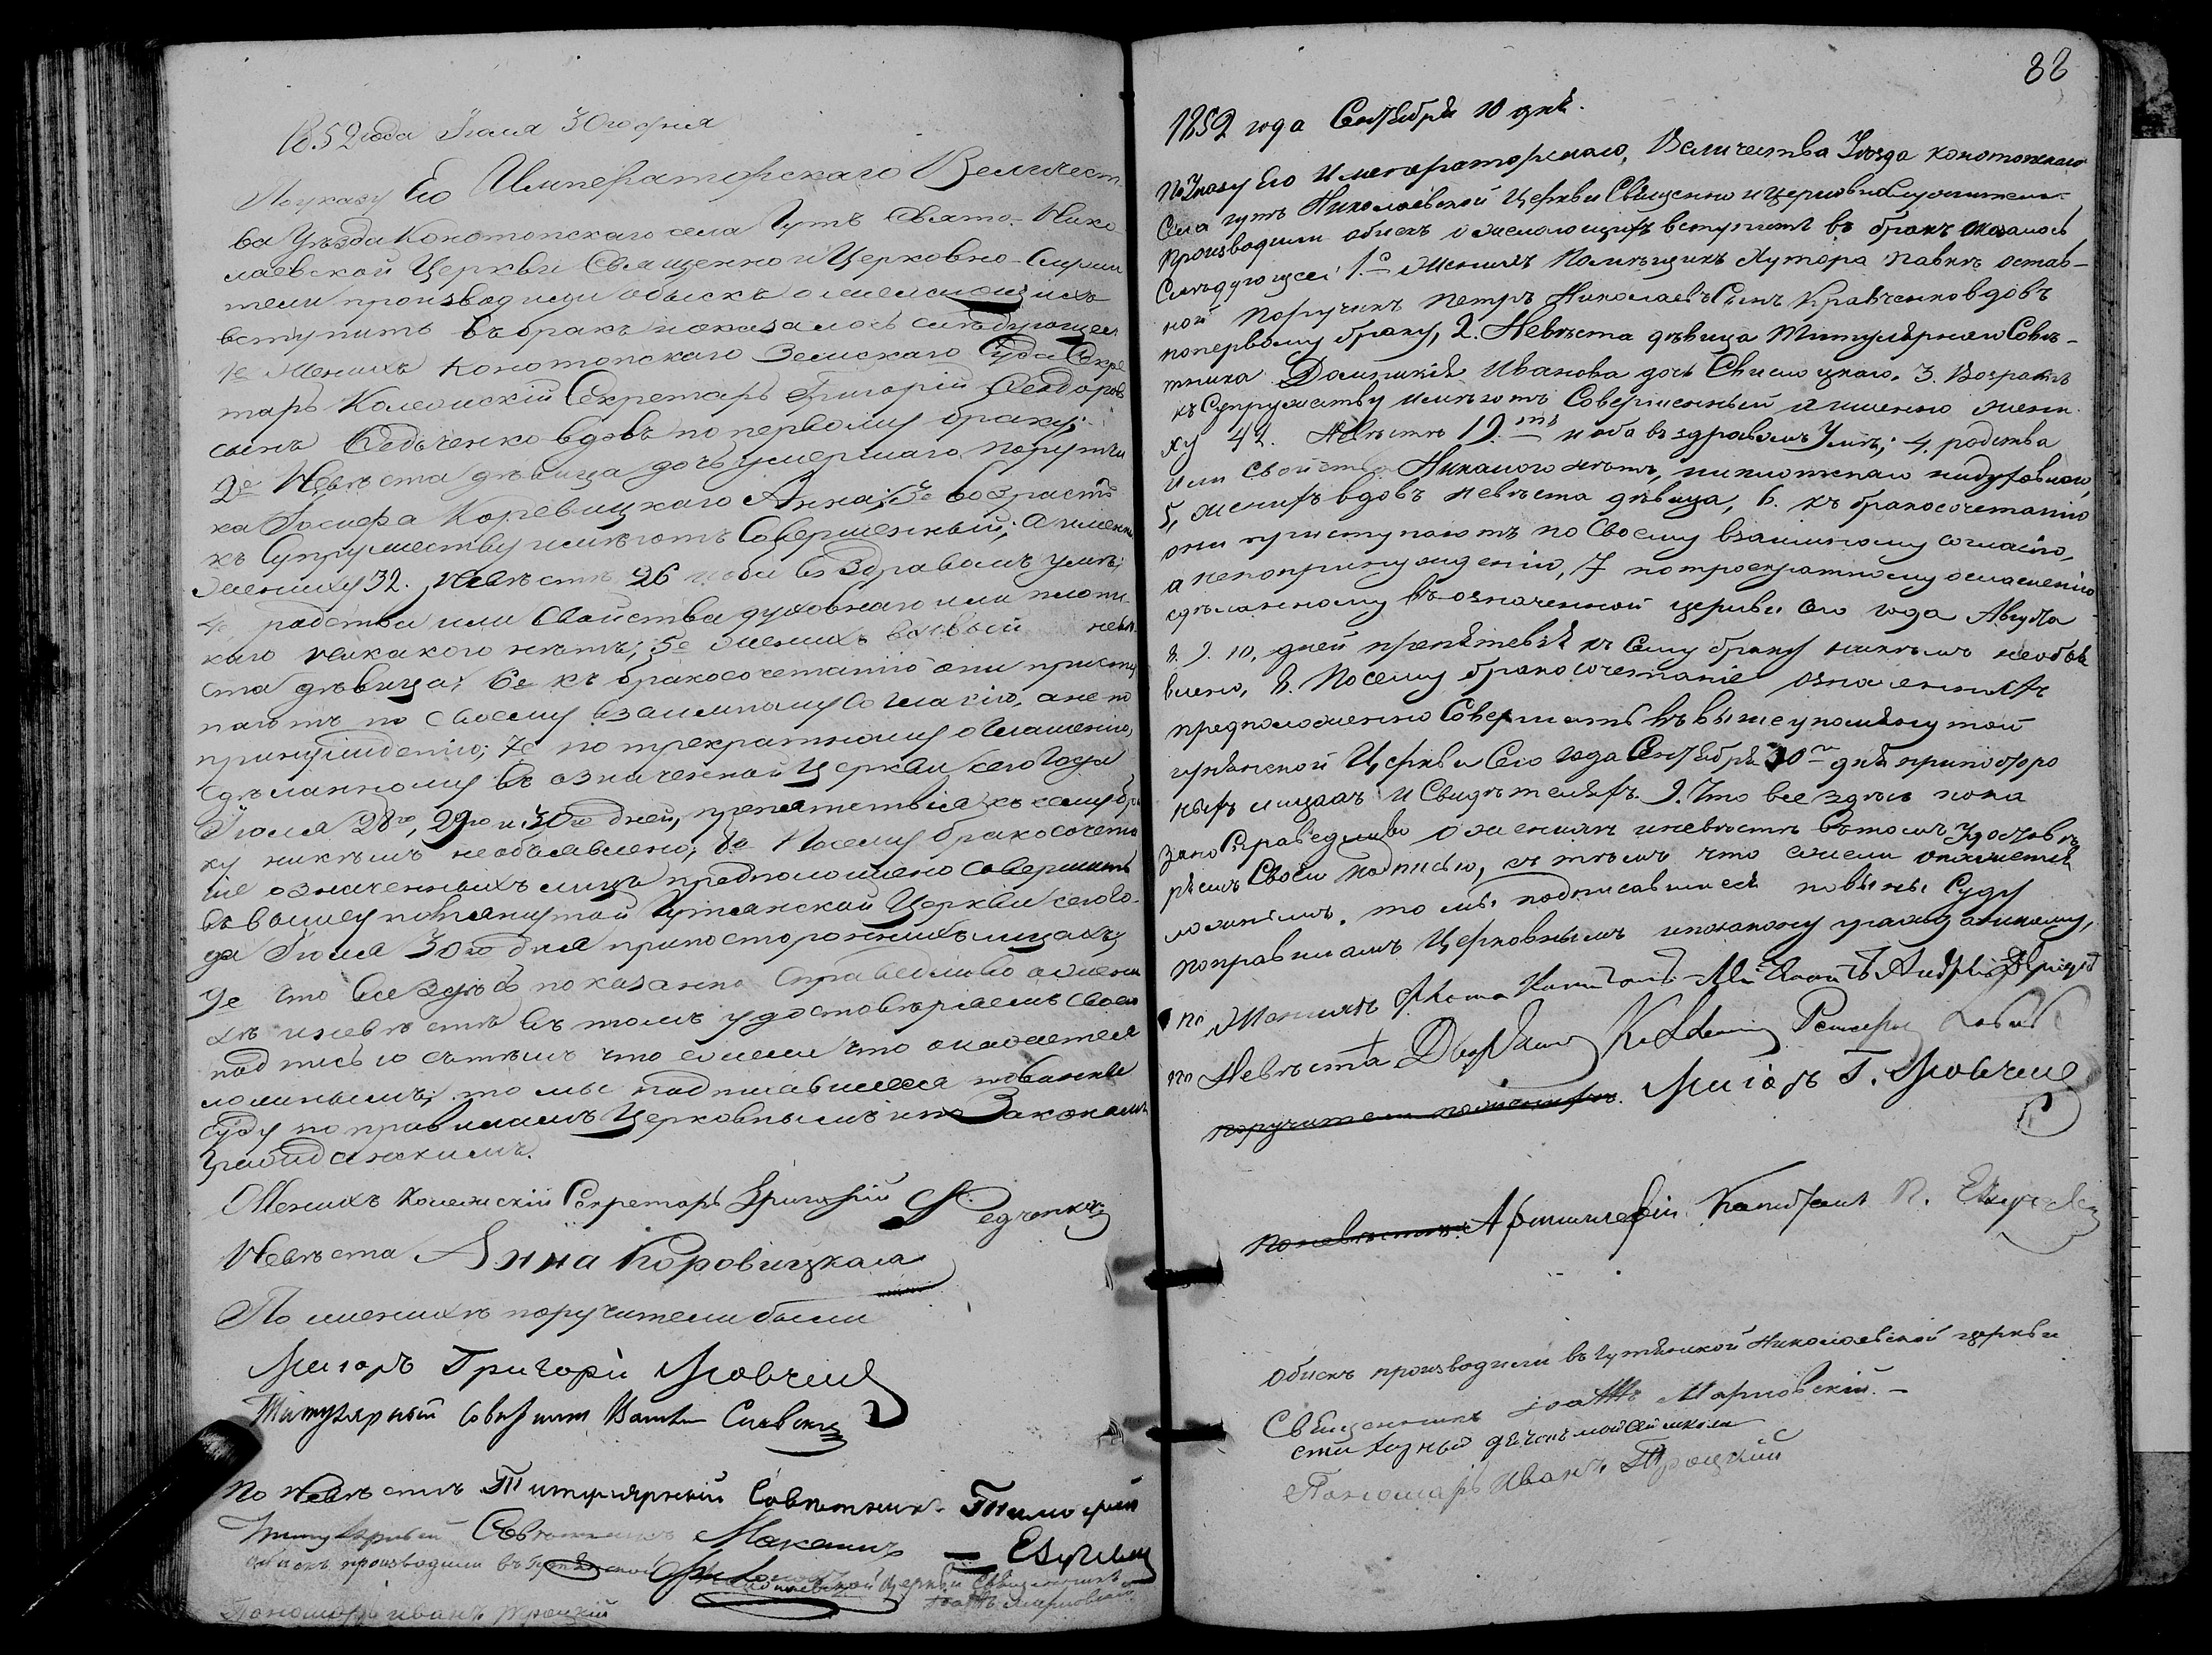 1852 года Июля 30го дня
По указу Его Императорскаго Величест-
ва Уѣзда Конотопскаго села Гутъ Свято-Нико
лаевской Церкви Священно и Церковно-Служи
тели производили обыскъ о желающихъ
вступить въ бракъ и оказалось слѣдующее
1е Женихъ Конотопскаго Земскаго Суда Секре
тарь Колежскій Секретарь Григорій Феодоровъ
сынъ Федченко вдовъ по первому браку;
2е Невѣста дѣвица дочь умершаго Поручи
ка Іосифа Коревицкаго Анна; 3е Возрастъ
къ Супружеству имѣютъ Совершенный; а именно
Жениху 32. Невѣстѣ 26 и оба въ Здравомъ умѣ;
4е родства или Свойства духовнаго или плотс
каго никакого нѣтъ; 5е Женихъ вдовый невѣ
ста дѣвица; 6е къ бракосочетанію они присту
паютъ по Своему взаимному Согласію, а не по
принужденію; 7е по трекратному оглашенію,
сдѣланному въ означенной Церкви сего Года
Июля 28го, 29го и 30го дней, препятствія къ сему бра
ку никѣмъ не объявлено; 8е Посему бракосочета
ніе означенныхъ лицъ предположено Совершить
въ вышеупомянутой Гутянской Церкви сего го-
да Июля 30го дня при постороннихъ лицахъ;
9е Что все здѣсь показанно Справедливо о жени
хѣ и невѣстѣ въ томъ удостовѣряемъ Своею
подписью съ тѣмъ что ежели что окажется
ложнымъ; то мы подписавшіеся повинны
Суду по правиламъ Церковнымъ и по Законамъ
Гражданскимъ.
Женихъ Колежскій Секретарь Григорій Федченко
Невѣста Анна Коровицкая
По женихѣ поручители были
Маіоръ Григорій
Титулярный Совѣтникъ
По Невѣстѣ Титулярный Совѣтникъ Тимофей
Титулярный Совѣтникъ
обыскъ производили въ Гутянской Николаевской церкви Священникъ
Пономарь Иванъ Троцкій
88
1852 года Сентября 10 дня.
По Указу Его Императорскаго, Величества Уѣзда Конотопскаго
Села Гутъ Николаевской Церкви Священно и Церковнослужители
Производили обыскъ о желающихъ вступить въ бракъ оказалось
Слѣдующее: 1.е Женихъ Помѣщикъ Хутора остав-
ной Поручикъ Петръ Николаевъ Сынъ Кравченко вдовъ
по первому браку, 2. Невѣста дѣвица Титулярнаго Совѣ-
тника Домникія Иванова дочь 3. Возрастъ
къ Супружеству имѣютъ Совершенный а именно жени-
ху 42. Невѣстѣ 19.ть и оба въ здравомъ Умѣ; 4. родства
или свойства Никакого нѣтъ, ни плотскаго ни духовнаго,
5, Женихъ вдовъ невѣста дѣвица, 6. къ бракосочетанію
они приступаютъ по Своему взаимному согласію,
а не по принужденію, 7 по троекратному оглашенію
сдѣланному въ означенной церкви сего года Августа
8. 9. 10, дней препятствія къ Сему браку никѣмъ не объя
влено, 8. Посему бракосочетаніе означенныхъ
предположенно Совершить въ вышеупомянутой
гутянской Церкви Сего года Сентября 10го дня при посторо
нихъ лицахъ и Свидѣтеляхъ. 9. Что все здѣсь пока
зано Справедливо о женихѣ и невѣстѣ въ томъ Удостовѣ
ряемъ Своею подписью, съ тѣмъ что ежели окажется
ложнымъ. то мы подписавшіеся повинны Суду
по правиламъ Церковнымъ и по закону гражданскому,
по Женихѣ Андрей
по Невѣста
поручители по женихѣ. Маіоръ Г.
по невѣстѣ.
Обыскъ производили въ Гутянской Николаевской церкви
Священникъ Іоаннъ Марковскій. –
Пономарь Иванъ Троцкий